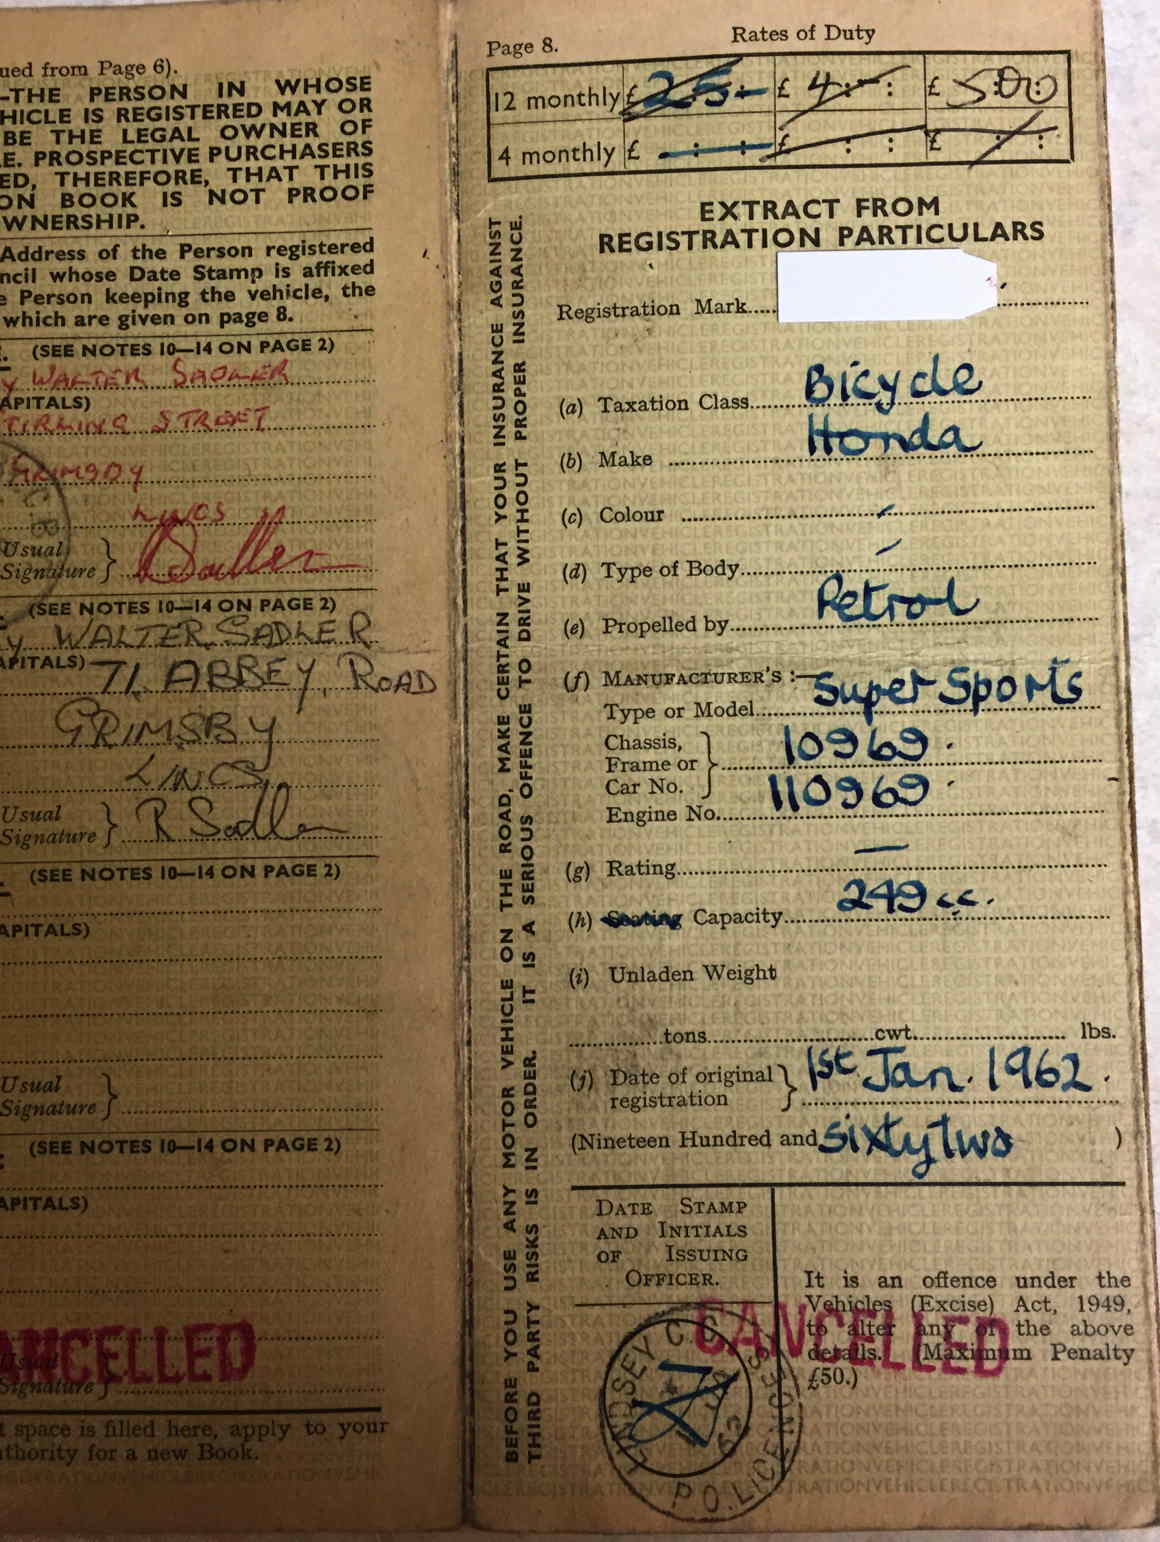 ued from Page 6).
—THE PERSON IN WHOSE
HICLE IS REGISTERED MAY OR
BE THE LEGAL OWNER OF
E. PROSPECTIVE PURCHASERS
ED, THEREFORE, THAT THIS
ON BOOK IS NOT PROOF
WNERSHIP.
Address of the Person registered
ncil whose Date Stamp is affixed
e Person keeping the vehicle, the
which are given on page 8.
(SEE NOTES 10—14 ON PAGE 2)
Y WALTER SADLER
APITALS)
TIRLING STREET
GRIMSBY
LINCS
Usual
Signature } R Sadler
(SEE NOTES 10—14 ON PAGE 2)
Y WALTER SADLER
APITALS) 71. ABBEY, ROAD
GRIMSBY
LINCS
Usual
Signature } R Sadler
(SEE NOTES 10—14 ON PAGE 2)
APITALS)
Usual
Signature }
(SEE NOTES 10—14 ON PAGE 2)
APITALS)
ANCELLED
Usual
Signature }
t space is filled here, apply to your
thority for a new Book.
BEFORE YOU USE ANY MOTOR VEHICLE ON THE ROAD, MAKE CERTAIN THAT YOUR INSURANCE AGAINST
THIRD PARTY RISKS IS IN ORDER. IT IS A SERIOUS OFFENCE TO DRIVE WITHOUT PROPER INSURANCE.
Page 8.
Rates of Duty
12 monthly £ 2 : 5 : — £ 4 : — : £ 5:0:0
4 monthly £ — : — : — £ : : £ : :
EXTRACT FROM
REGISTRATION PARTICULARS
Registration Mark
(a) Taxation Class Bicycle
(b) Make Honda
(c) Colour –
(d) Type of Body –
(e) Propelled by Petrol
(f) MANUFACTURER'S :—
Type or Model Super Sports
Chassis,
Frame or } 10969
Car No.
Engine No. 110969
(g) Rating —
(h) Seating Capacity 249 c.c.
(i) Unladen Weight
tons cwt. lbs.
(j) Date of original } 1st Jan. 1962.
registration
(Nineteen Hundred and sixty two )
DATE STAMP
AND INITIALS
OF ISSUING
OFFICER.
It is an offence under the
Vehicles (Excise) Act, 1949,
to alter any of the above
details. (Maximum Penalty
£50.)
CANCELLED
LINDSEY C.C.
JAN
62
LICENCES